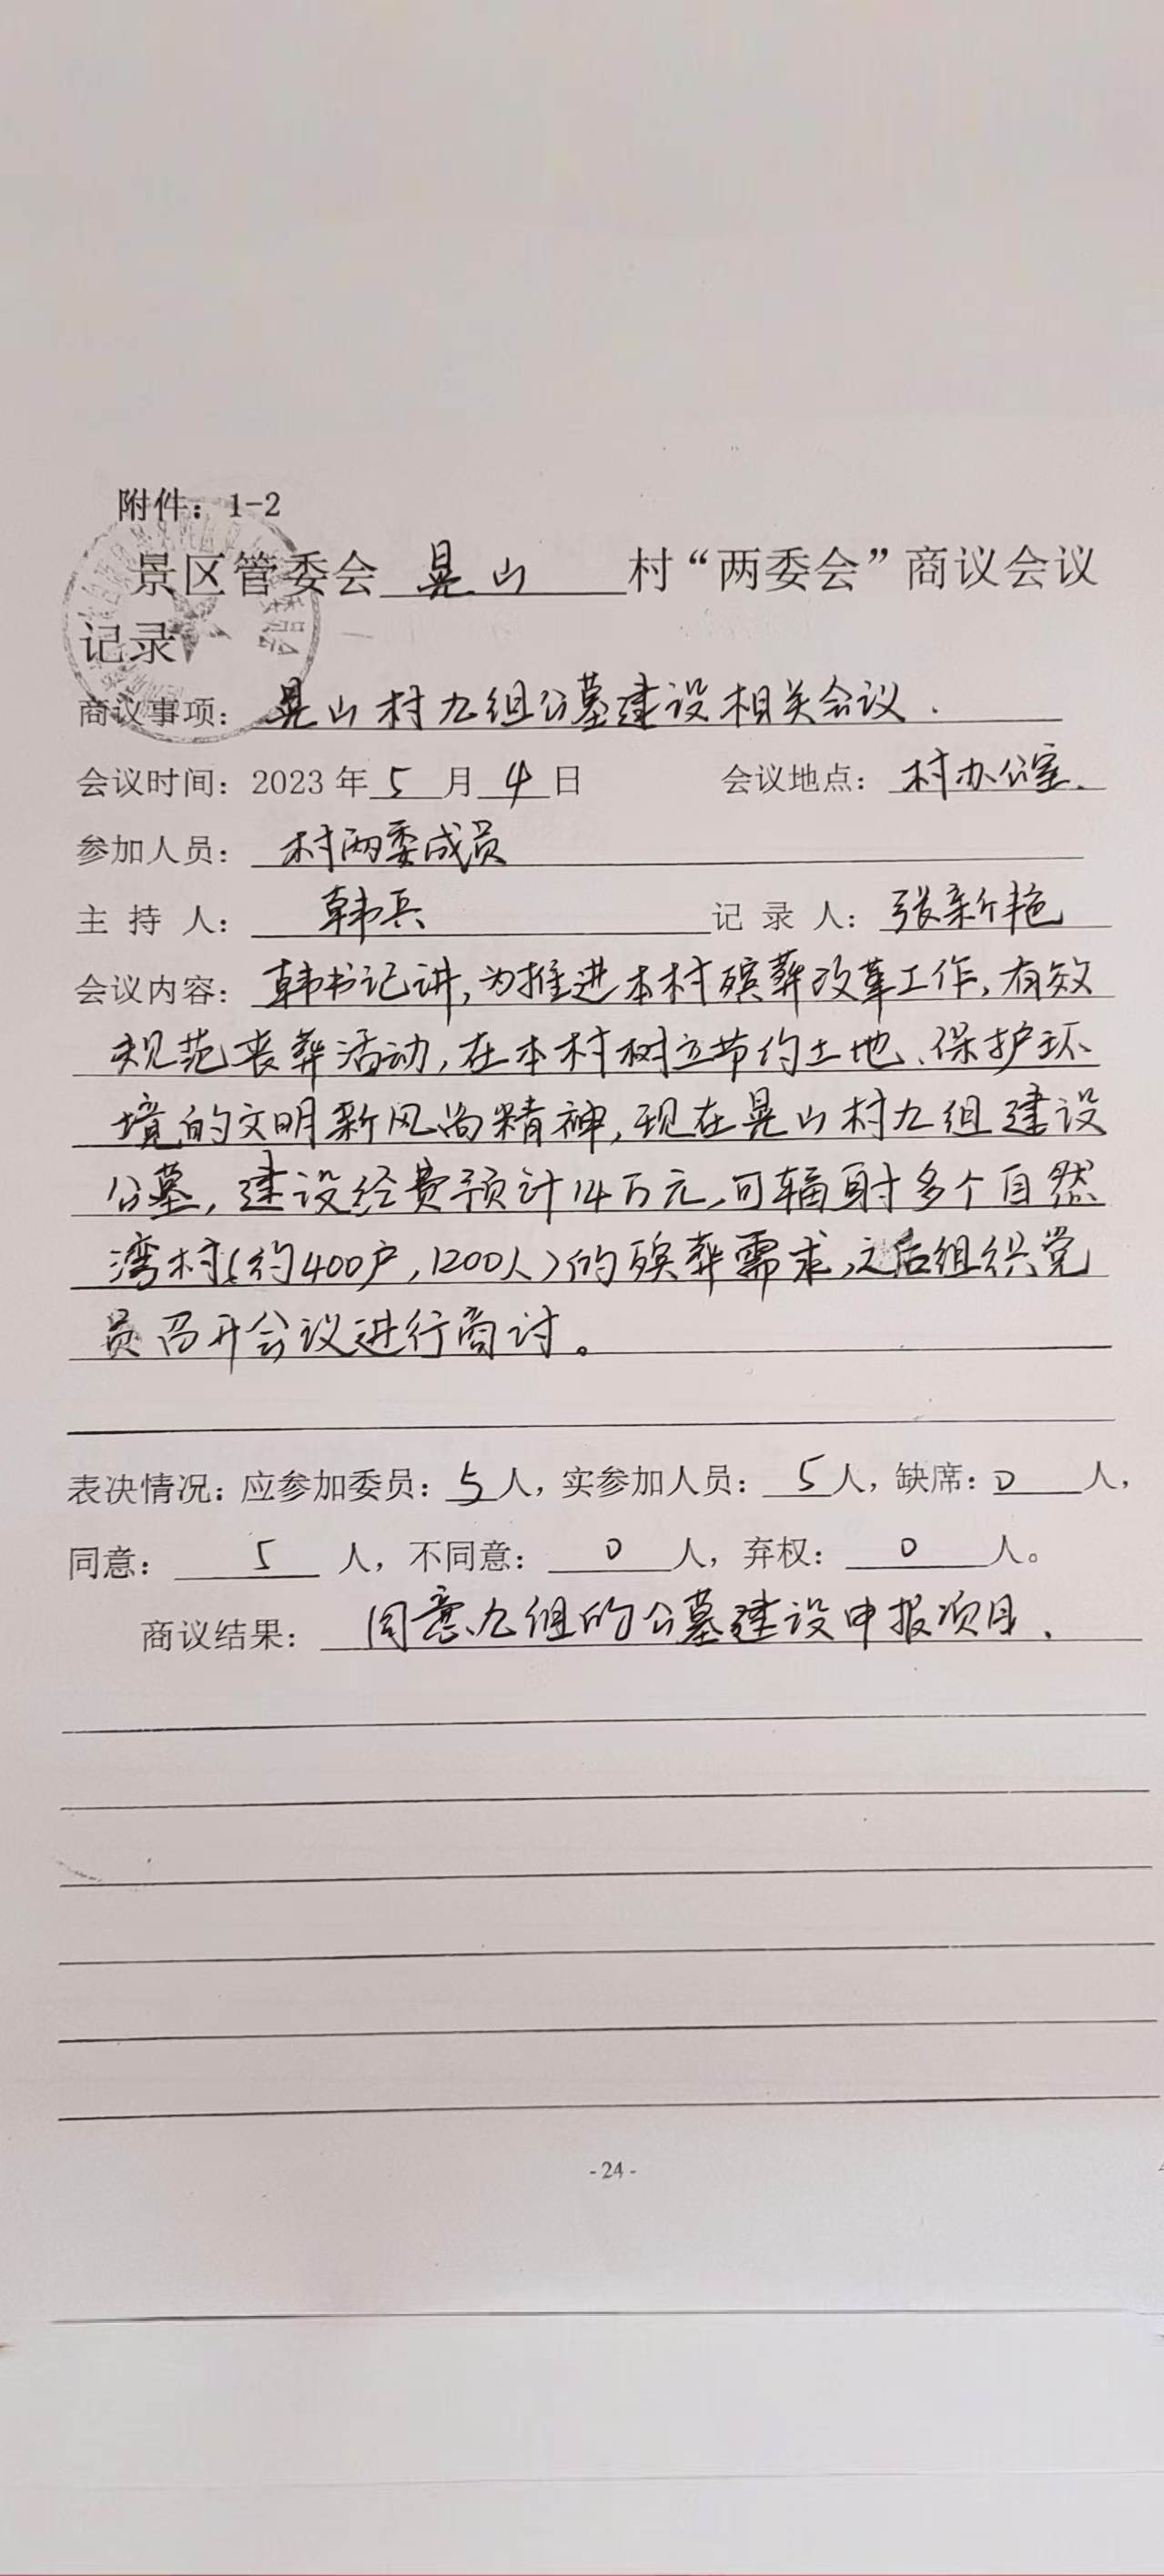 附件：1-2
景区管委会 晃山 村“两委会”商议会议
记录
商议事项：晃山村九组公墓建设相关会议.
会议时间：2023年5月4日 会议地点：村办公室.
参加人员：村两委成员
主持人：韩兵 记录人：张新艳
会议内容：韩书记讲,为推进本村殡葬改革工作,有效
规范丧葬活动,在本村树立节约土地、保护环
境的文明新风尚精神,现在晃山村九组建设
公墓,建设经费预计14万元,可辐射多个自然
湾村(约400户,1200人)的殡葬需求,之后组织党
员召开会议进行商讨。
表决情况：应参加委员：5人，实参加人员：5人，缺席：0人，
同意：5人，不同意：0人，弃权：0人。
商议结果：同意九组的公墓建设申报项目.
-24-